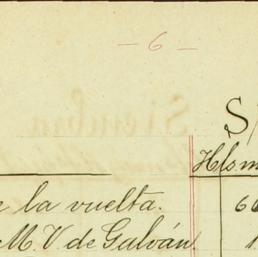 - 6 -
S/
Hls.m
e la vuelta. 60
M. V. de Galván 1